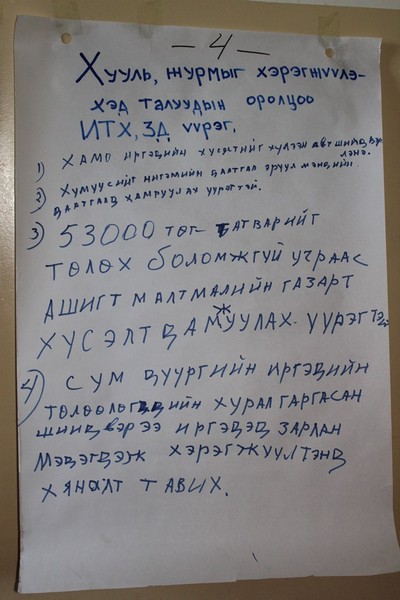 — 4 —
Хууль, журмыг хэрэгжүүлэ-
хэд талуудын оролцоо
ИТХ, ЗД үүрэг.
1) ХАМО иргэдийн хүсэлтийг хүлээн авч шийдвэр-
лэнэ.
2) Хүмүүсийг нигэмийн даатгал эрүүл мэндийн
даатгалд хамруулах үүрэгтэй.
3) 53000 төг татварийг
төлөх боломжгүй учраас
ашигт малтмалийн газарт
хүсэлт дамжуулах үүрэгтэй
4) Сум дүүргийн иргэдийн
төлөөлөгцдийн хурал гаргасан
шийдвэрээ иргэдэд зарлан
мэдэгдэж хэрэгжүүлтэнд
хяналт тавих.